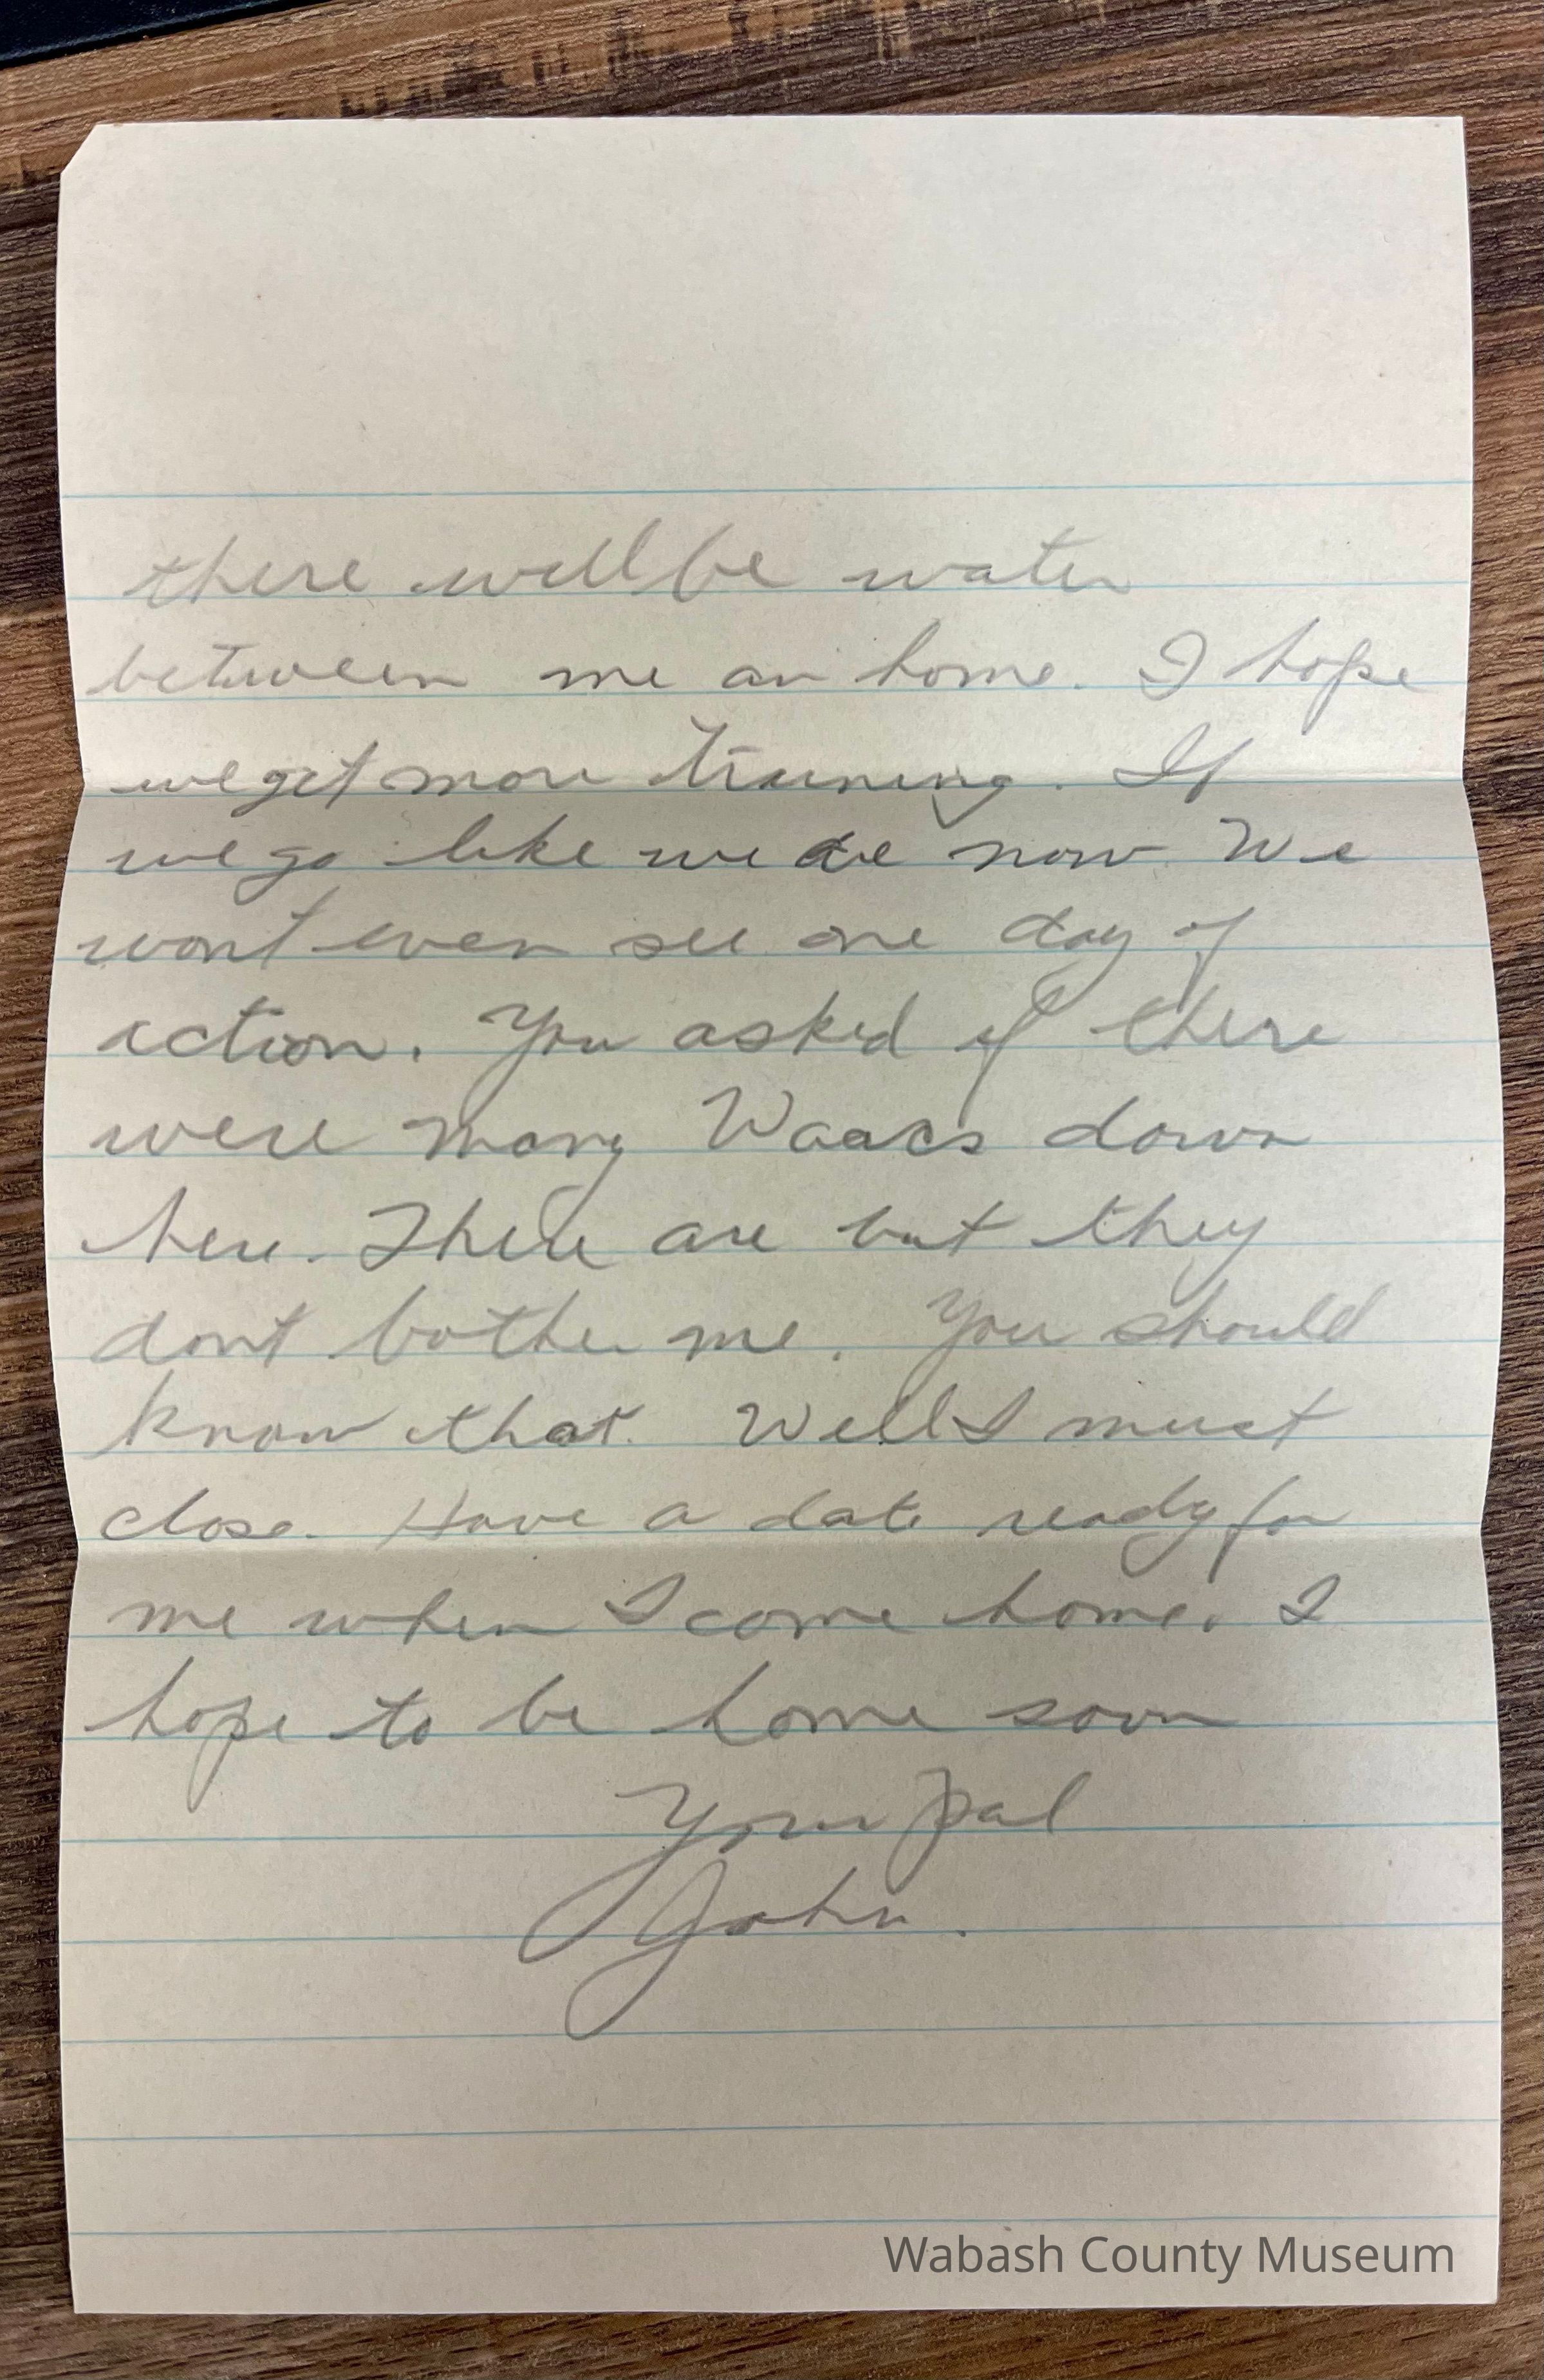 there will be water
between me an home. I hope
we get more training. If
we go like we are now We
wont even see one day of
action. You asked if there
were many Waacs down
here. There are but they
dont bother me. You should
know that. Well I must
close. Have a date ready for
me when I come home. I
hope to be home soon
Your pal
John.
Wabash County Museum